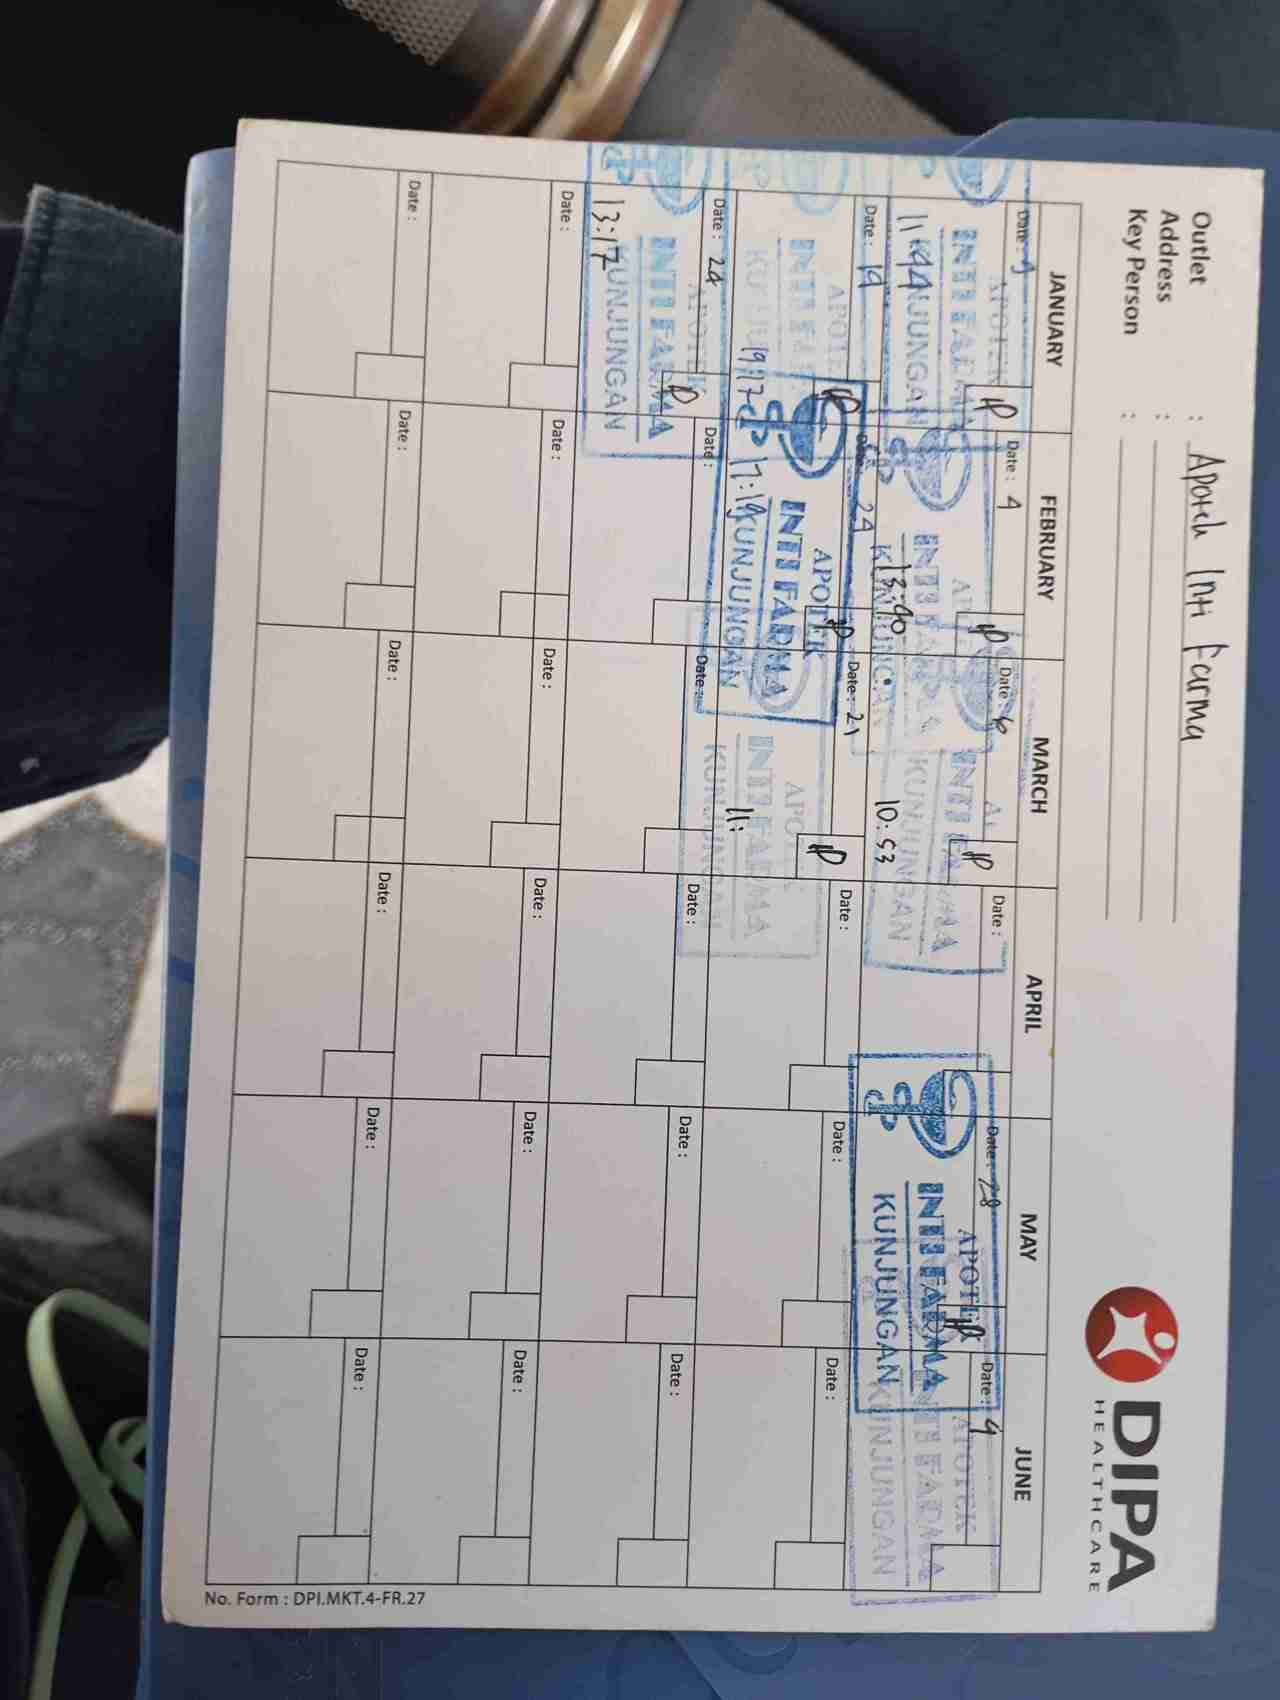 Outlet : Apotek Inti Farma
Address :
Key Person :
DIPA
HEALTHCARE
JANUARY FEBRUARY MARCH APRIL MAY JUNE
Date : 9 Date : 4 Date : 6 Date : Date : 28 Date : 4
APOTEK
INTI FARMA
KUNJUNGAN
11:44
INTI FARMA
KUNJUNGAN
13:40
INTI FARMA
KUNJUNGAN
10:53
APOTEK
INTI FARMA
KUNJUNGAN
APOTEK
INTI FARMA
KUNJUNGAN
Date : 19 Date : 24 Date : 21 Date : Date : Date :
APOTEK
INTI FARMA
19:17
APOTEK
INTI FARMA
17:19 KUNJUNGAN
INTI FARMA
KUNJUNGAN
11:
Date : 24 Date : Date : Date : Date : Date :
APOTEK
INTI FARMA
KUNJUNGAN
13:17
Date : Date : Date : Date : Date : Date :
Date : Date : Date : Date : Date : Date :
No. Form : DPI.MKT.4-FR.27